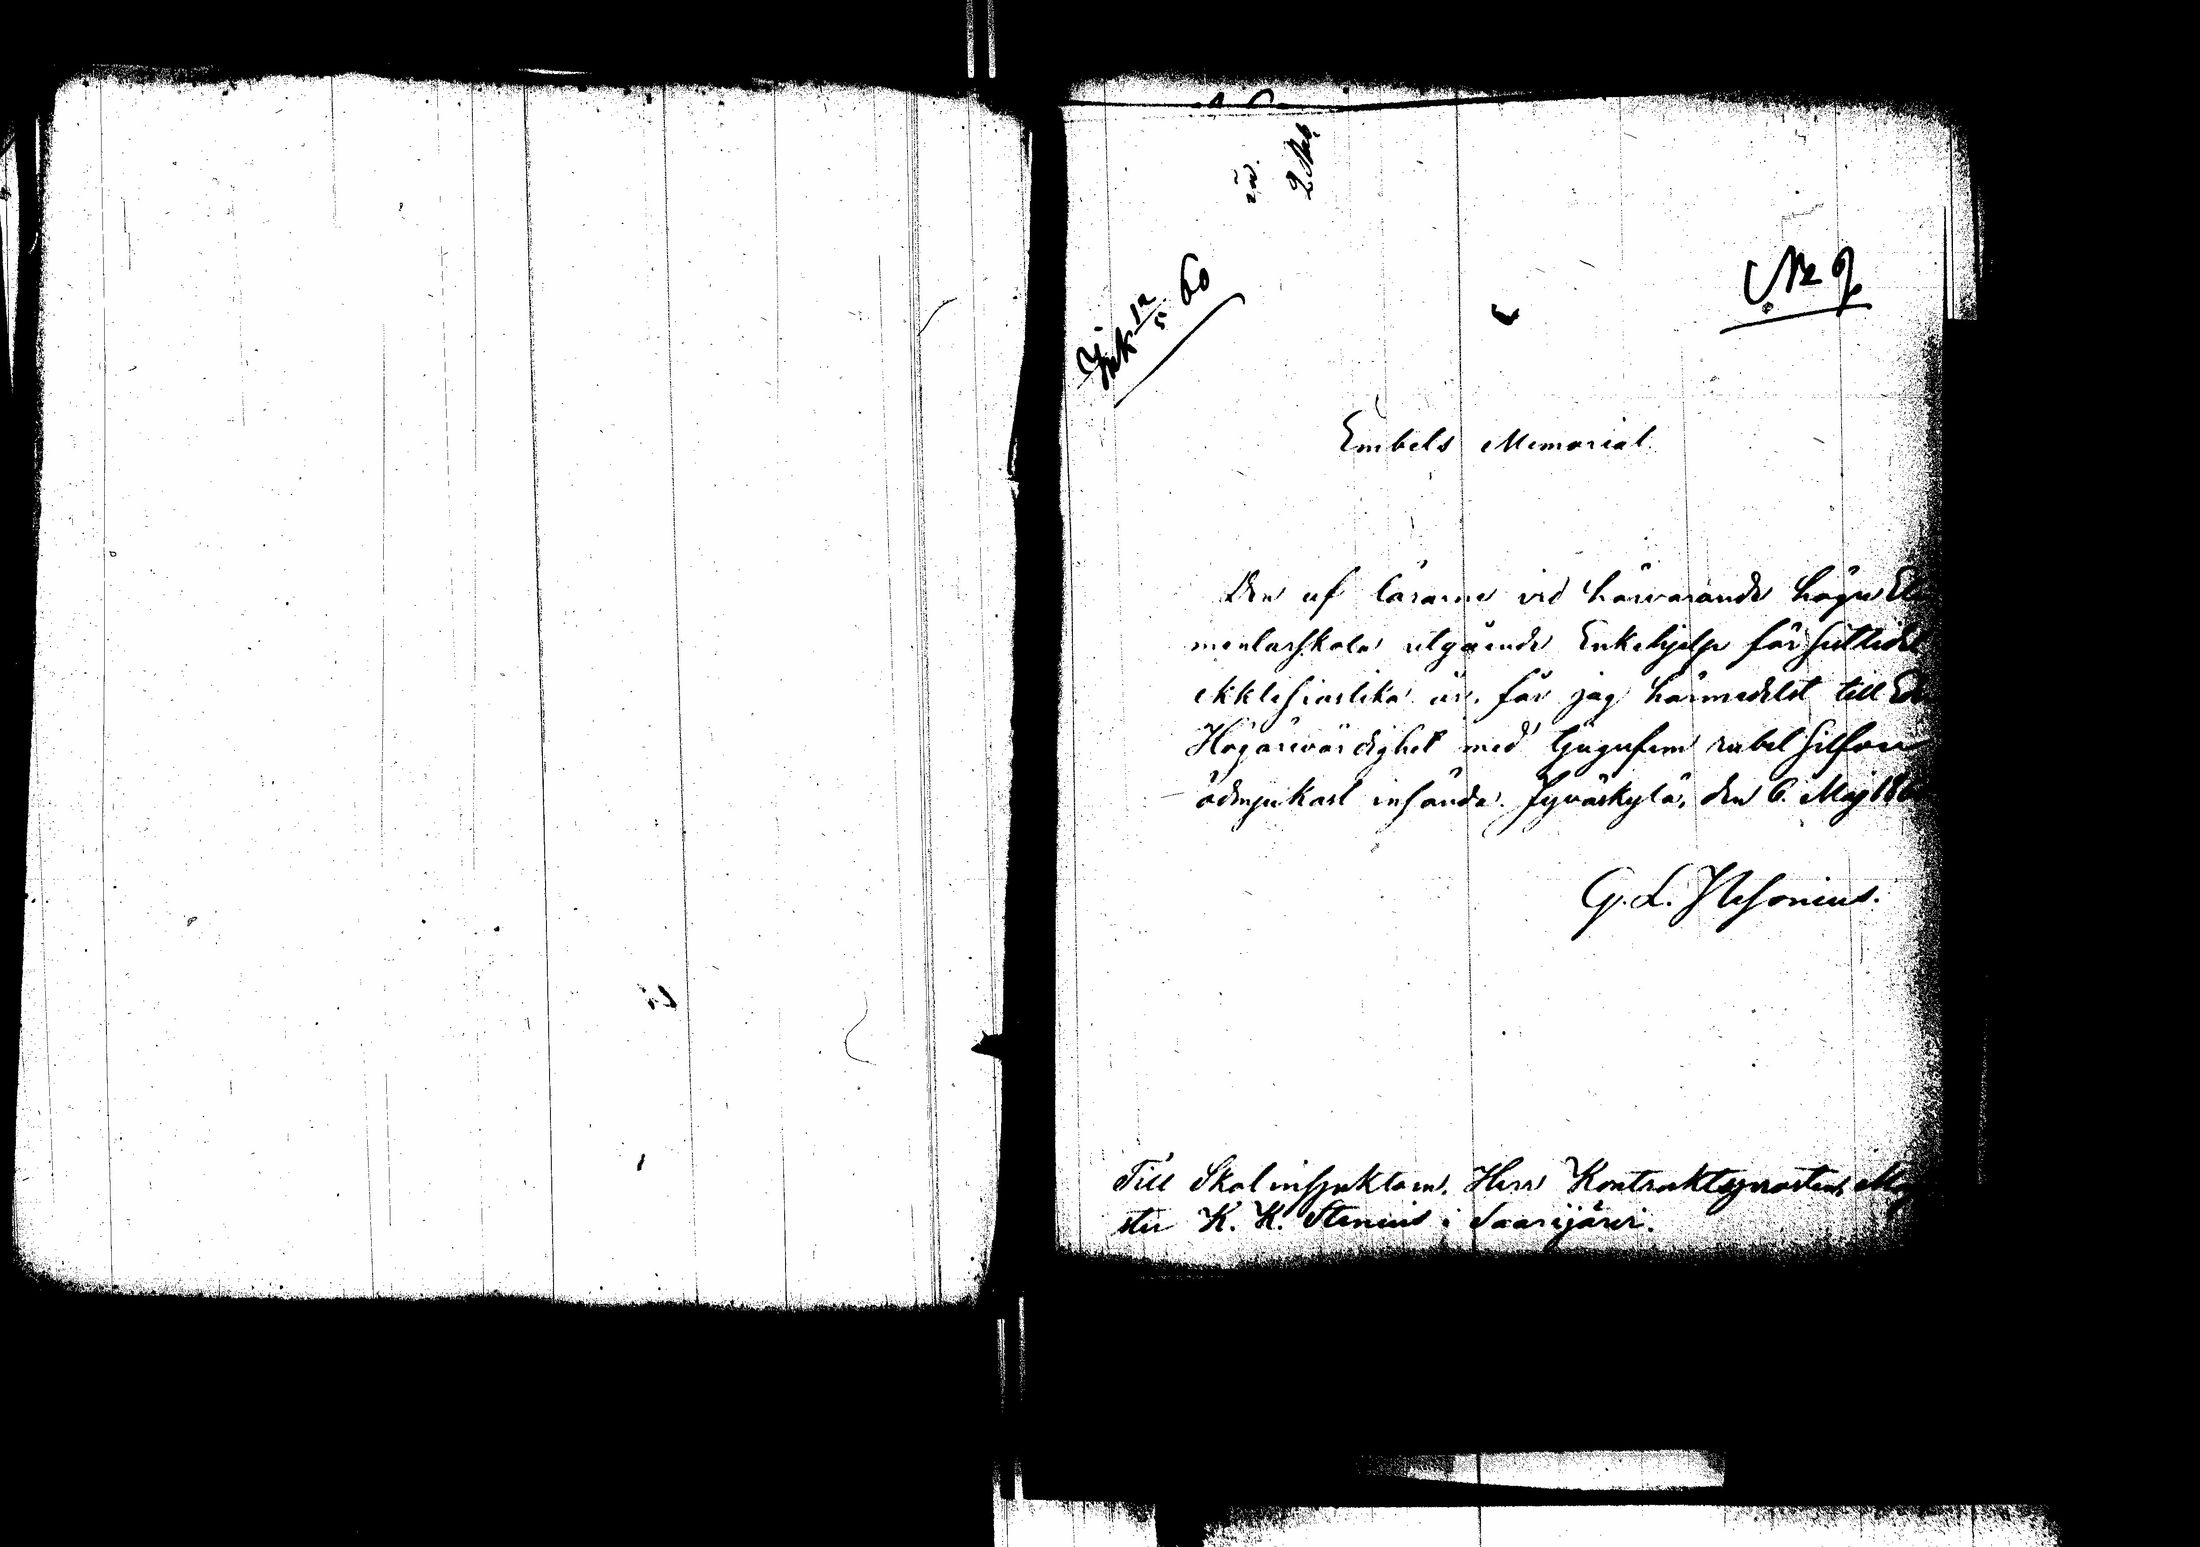 Ink 12/5 60
No 9.
Embets Memorial
Den af lärarne vid härvarande högre Ele
mentarskola utgående Enkehjelp för sittlidet
ekklesiastika år, får jag härmedelst till Eder
Högärevördighet med tjugufem rubel silfver
ödmjukast insända. Jyväskylä, den 6. Maj 186
G. L. Alesonius.
Till Skolinspektoren, Herr Kontraktsprosten, Magi
ster K. K. Stenius i Saarijärvi.